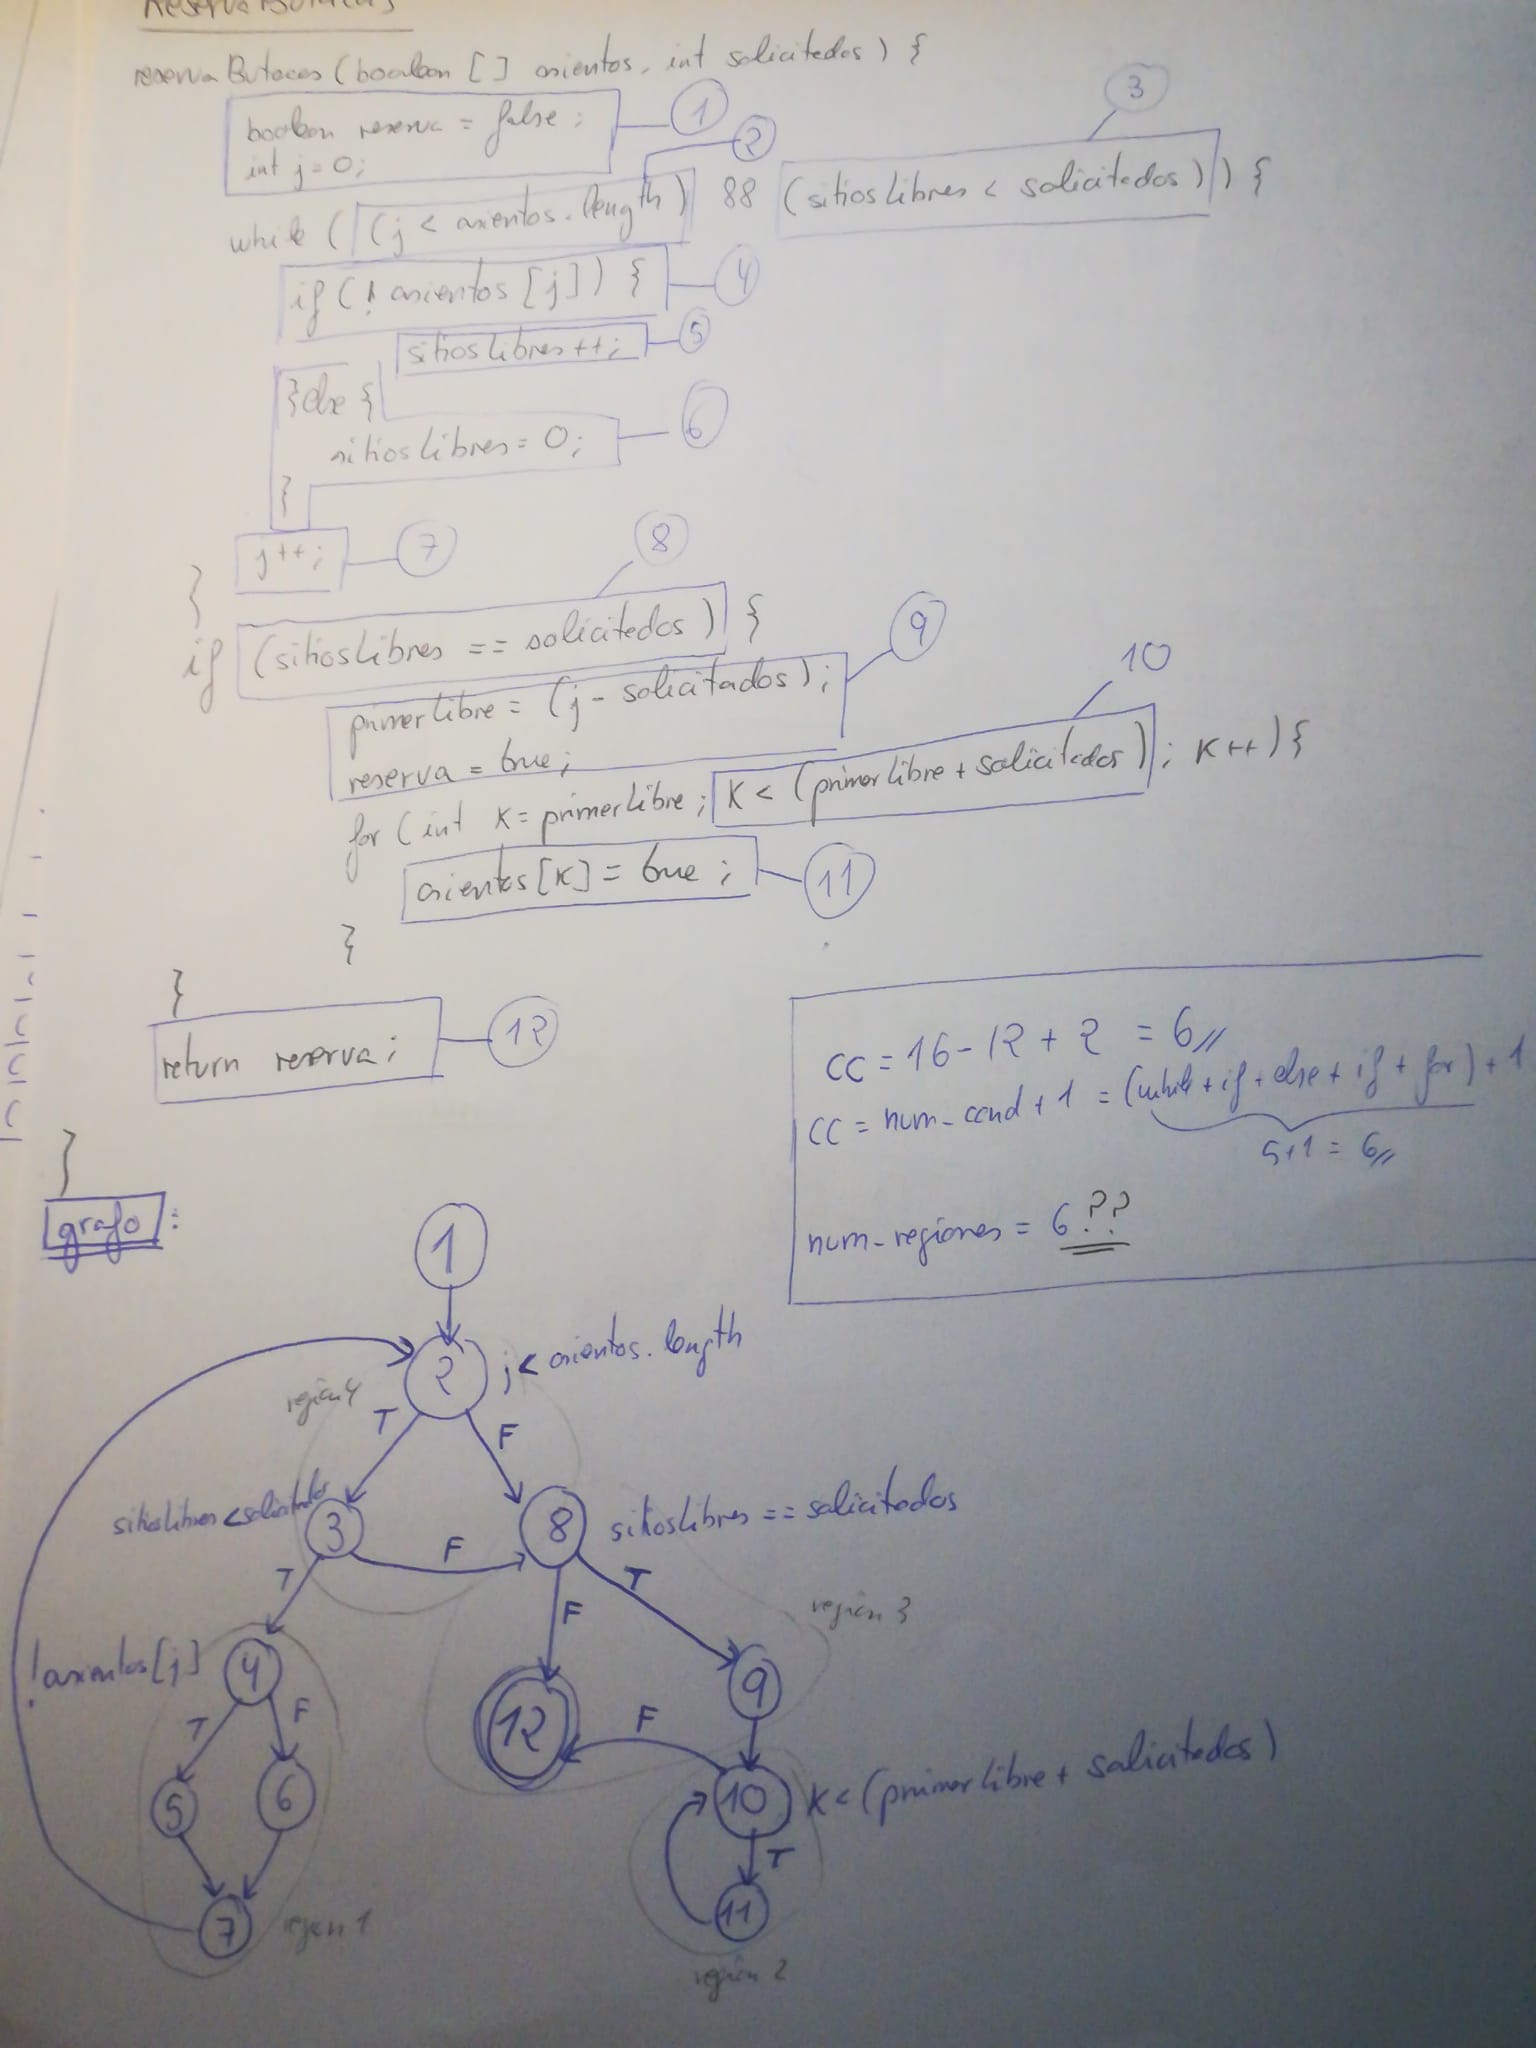 Reserva Butacas
reserva Butacas (boolean [] asientos, int solicitados) {
boolean reserva = false; 1
int j = 0; 2
while ( (j < asientos.length) && (sitiosLibres < solicitados) ) { 3
if (! asientos [j]) { 4
sitiosLibres ++; 5
} else {
sitiosLibres = 0; 6
}
j ++; 7
}
8
if (sitiosLibres == solicitados) {
primerLibre = (j - solicitados); 9
reserva = true; 10
for (int K = primerLibre; K < (primerLibre + solicitados); K++) {
asientos [K] = true; 11
}
}
return reserva; 12
}
CC = 16 - 12 + 2 = 6
CC = num_cond + 1 = (while + if + else + if + for) + 1
5+1 = 6
num_regiones = 6 ??
grafo:
1
2 j < asientos.length
región 4
T F
sitiosLibres < solicitados 3 F 8 sitiosLibres == solicitados
T F T
región 3
!asientos[j] 4 9
T F 12 F
5 6 10 K < (primerLibre + solicitados)
T
7 región 1 11
región 2